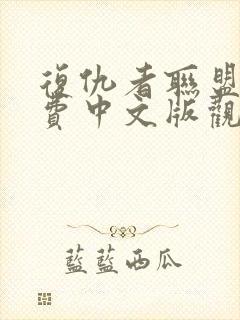 復仇者聯盟
費中文版觀
藍藍西瓜